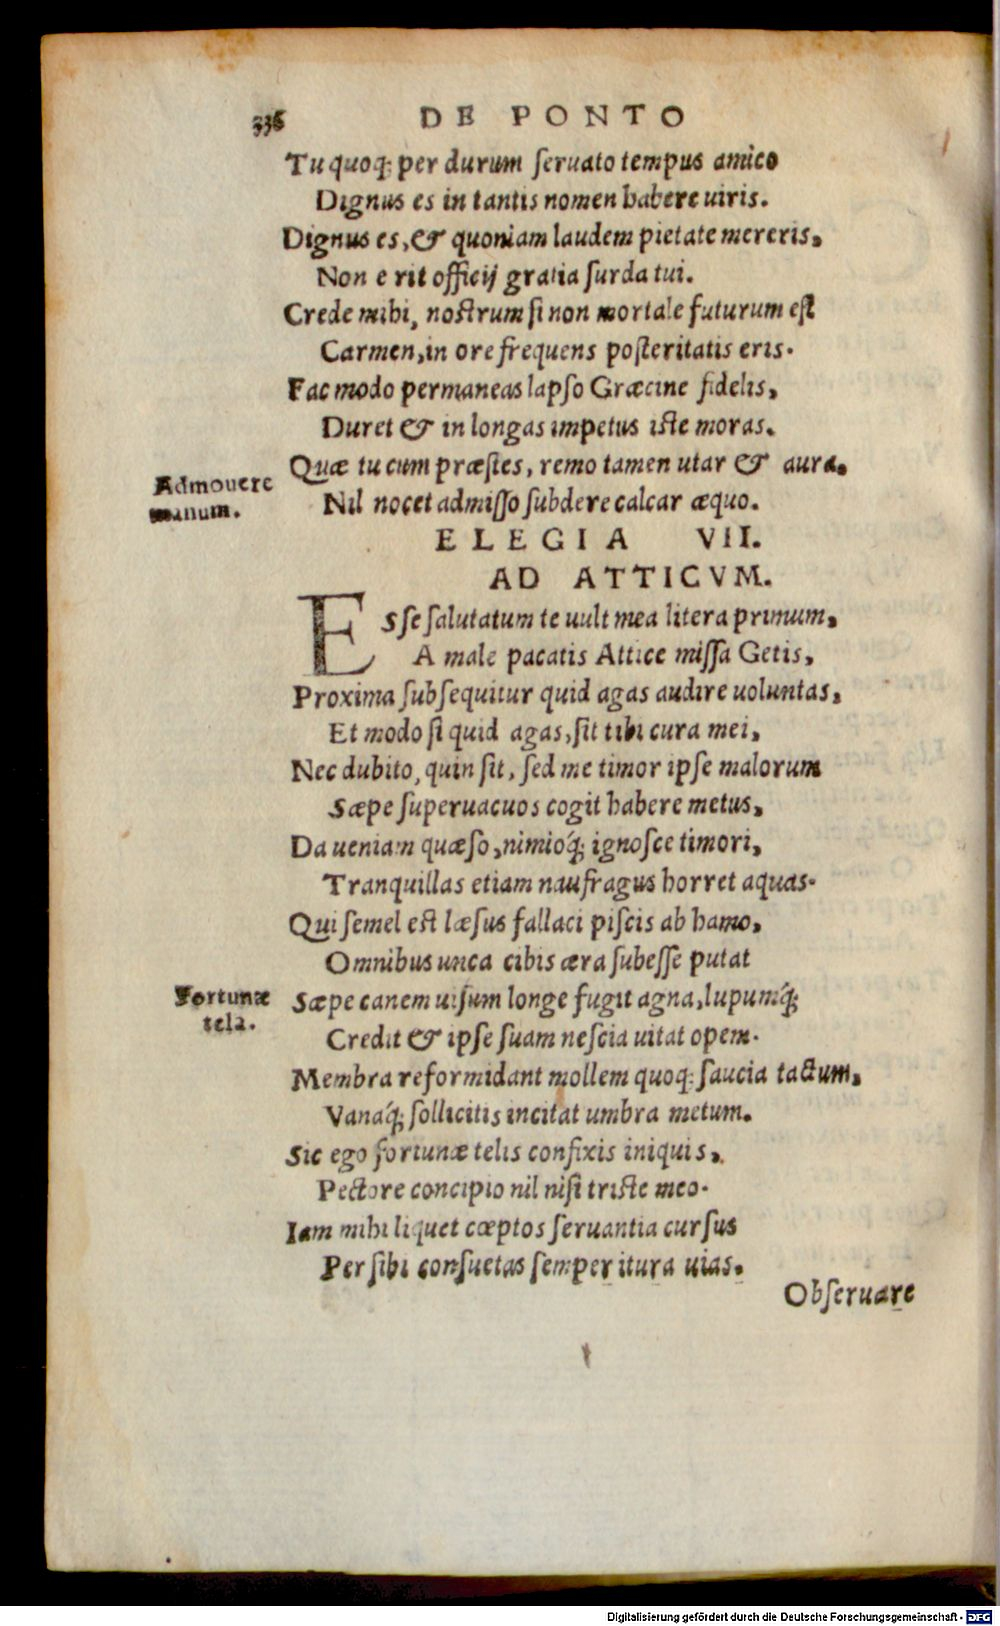 336 DE PONTO
Tu quoq; per durum ſeruato tempus amico
Dignus es in tantis nomen habere uiris.
Dignus es, & quoniam laudem pietate mereris,
Non erit officij gratia ſurda tui.
Crede mihi, noſtrum ſi non mortale futurum eſt
Carmen, in ore frequens poſteritatis eris.
Fac modo permaneas lapſo Græcine fidelis,
Duret & in longas impetus iſte moras.
Quæ tu cum præſtes, remo tamen utar & aura.
Admouere
manum.
Nil nocet admiſſo ſubdere calcar æquo.
ELEGIA VII.
AD ATTICVM.
ESſe ſalutatum te uult mea litera primum,
A male pacatis Attice miſſa Getis,
Proxima ſubſequitur quid agas audire uoluntas,
Et modo ſi quid agas, ſit tibi cura mei,
Nec dubito, quin ſit, ſed me timor ipſe malorum
Sæpe ſuperuacuos cogit habere metus,
Da ueniam quæſo, nimioq́; ignoſce timori,
Tranquillas etiam naufragus horret aquas.
Qui ſemel eſt læſus fallaci piſcis ab hamo,
Omnibus unca cibis æra ſubeſſe putat
Fortunæ
tela.
Sæpe canem uiſum longe fugit agna, lupumq́;
Credit & ipſe ſuam neſcia uitat opem.
Membra reformidant mollem quoq; ſaucia tactum,
Vanaq́; ſollicitis incitat umbra metum.
Sic ego fortunæ telis confixis iniquis,
Pectore concipio nil niſi triſte meo.
Iam mihi liquet cœptos ſeruantia curſus
Per ſibi conſuetas ſemper itura uias.
Obſeruare
Digitalisierung gefördert durch die Deutsche Forschungsgemeinschaft - DFG